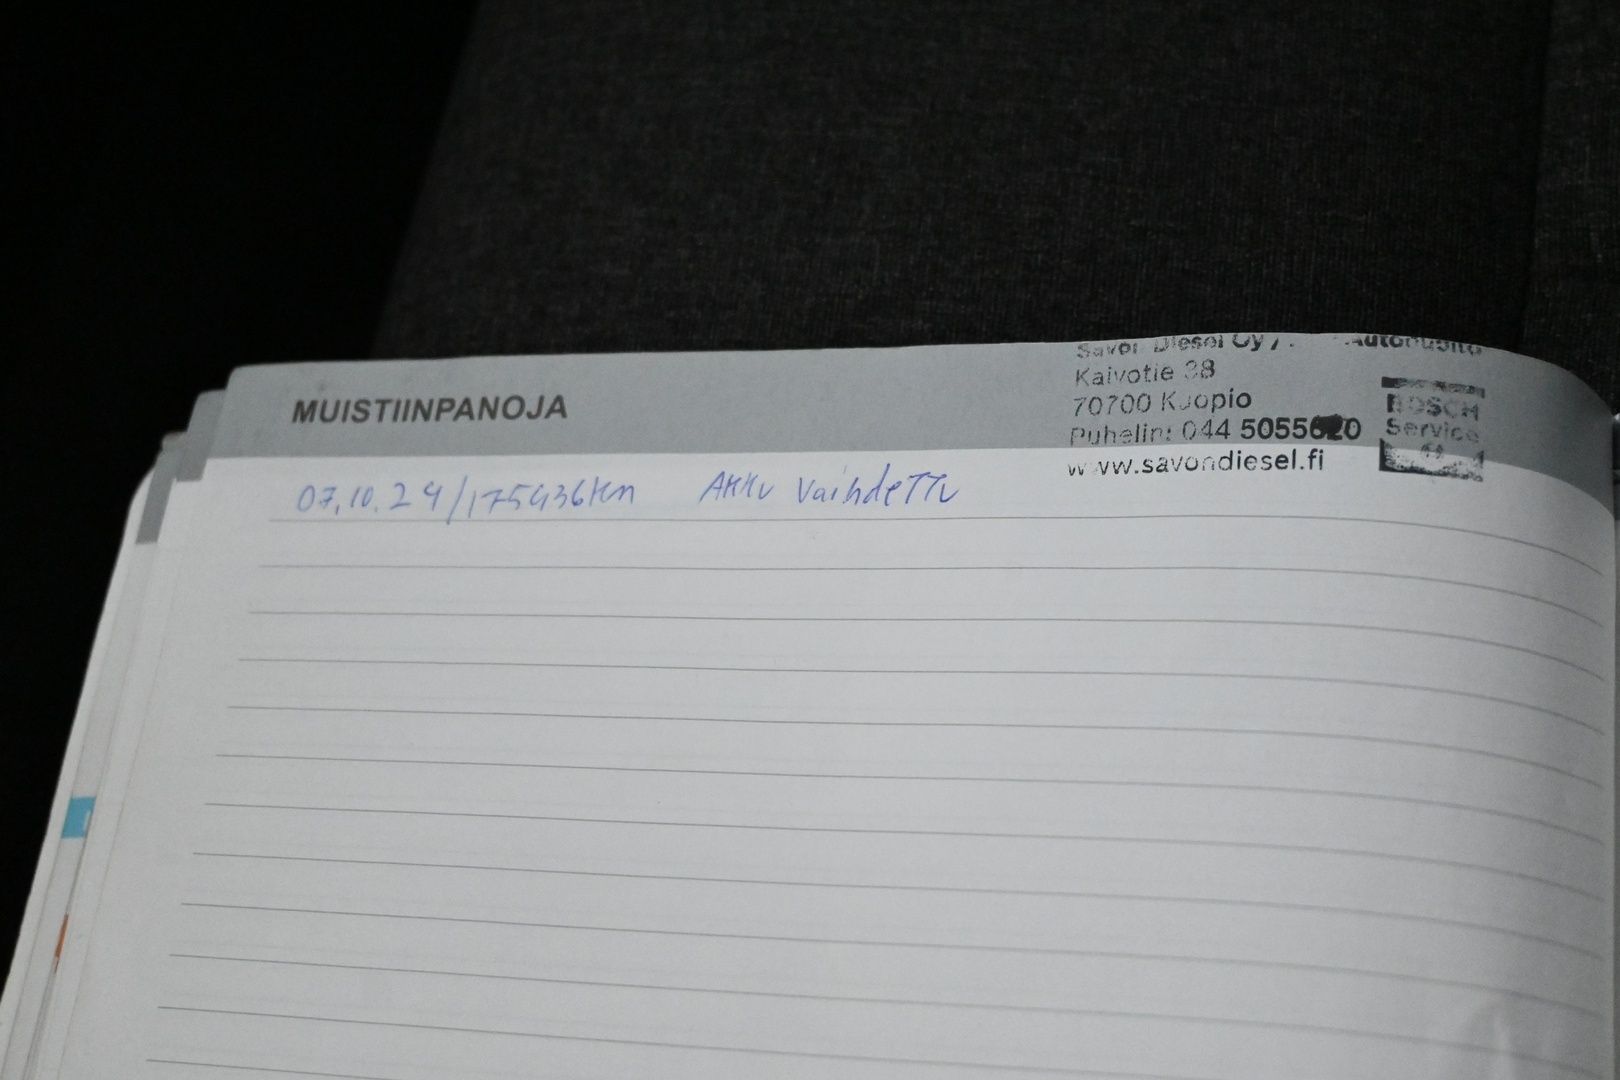 MUISTIINPANOJA
Savon Diesel Oy / Autohuolto
Kaivotie 38
70700 Kuopio
Puhelin: 044 5055620
www.savondiesel.fi
BOSCH
Service
07.10.24/175436km Akku vaihdettu